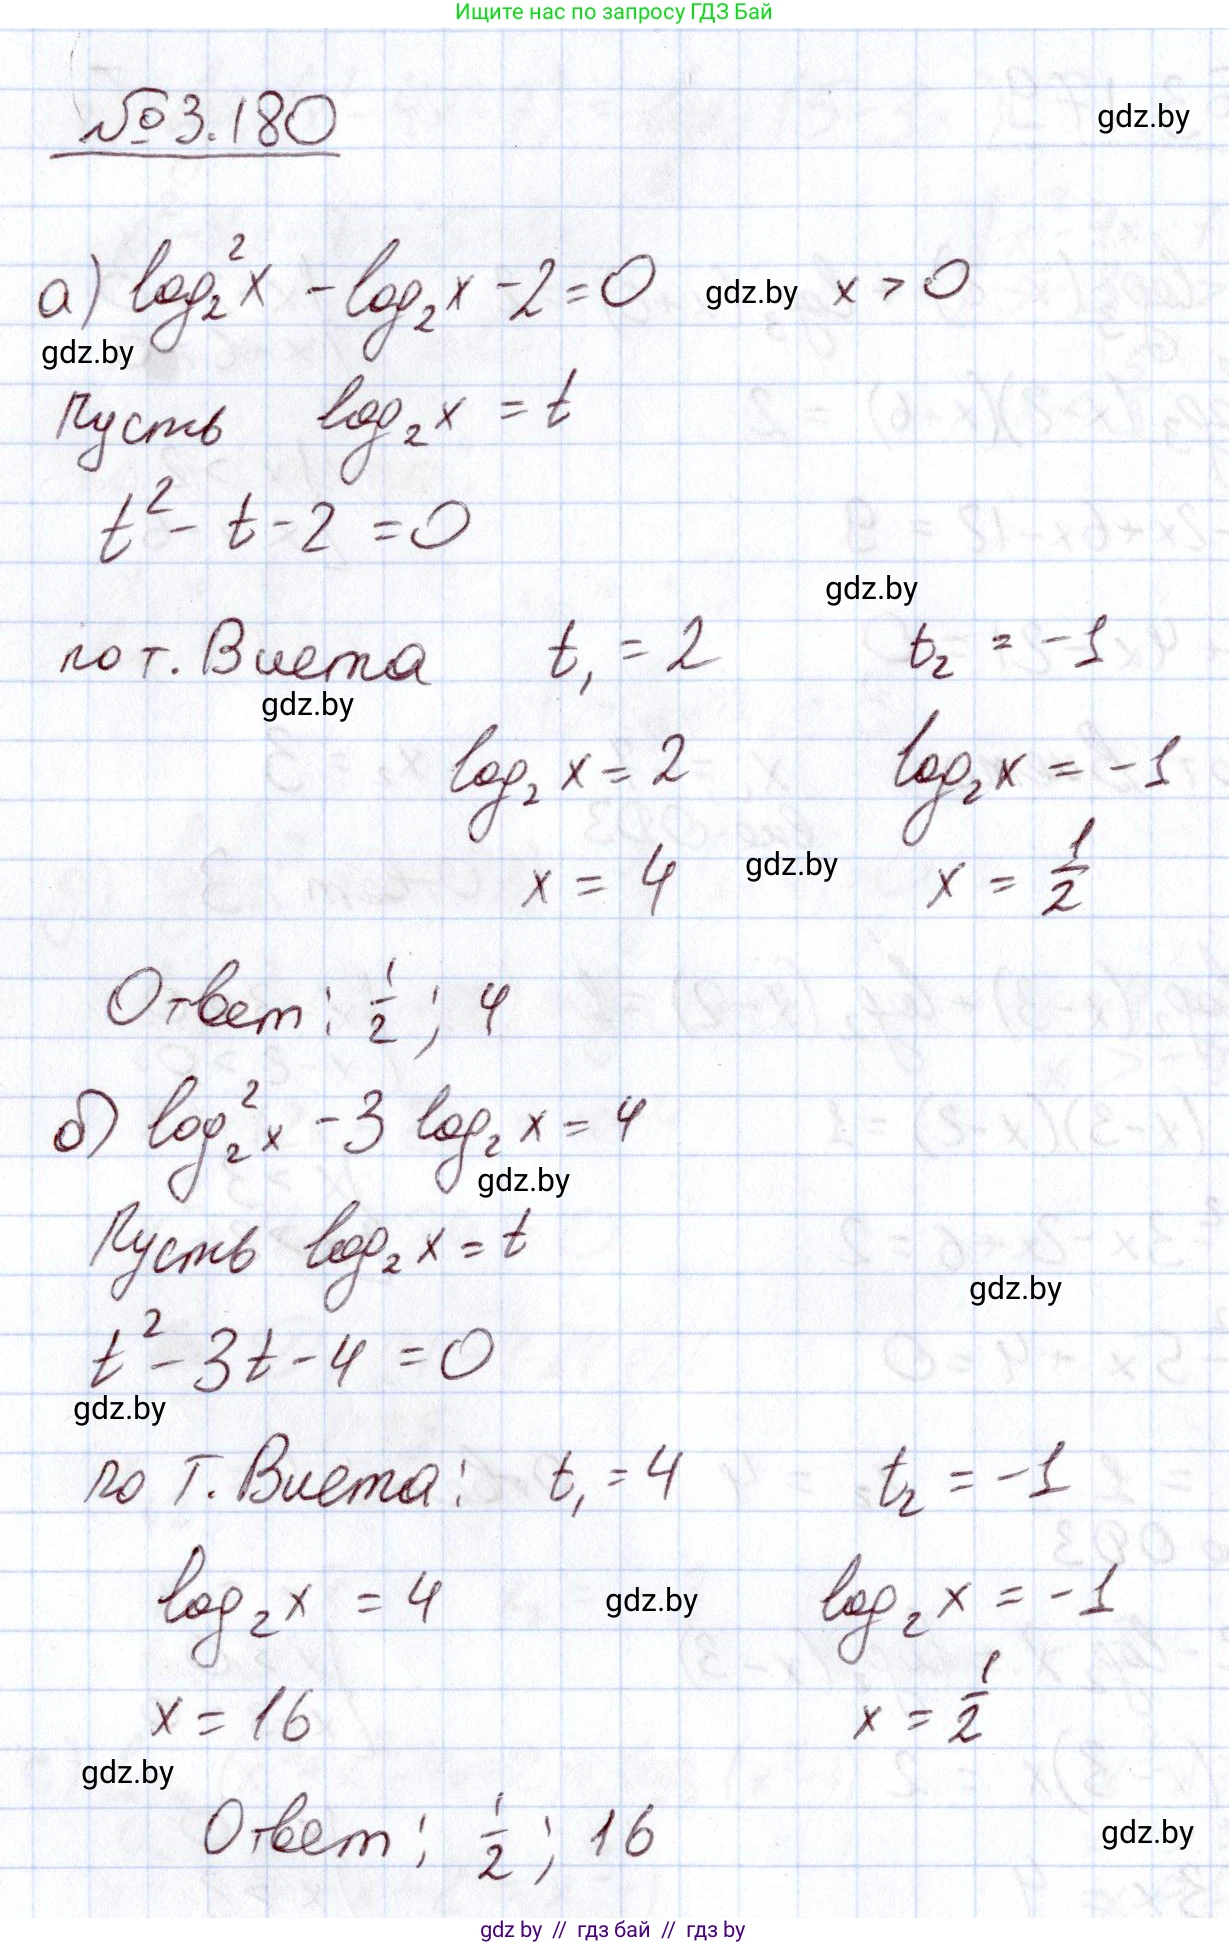 Ищите нас по запросу ГДЗ Бай
№3.180
gdz.by
а) log₂²x - log₂x - 2 = 0 gdz.by x > 0
gdz.by
Пусть log₂x = t
t² - t - 2 = 0
gdz.by
по т. Виета t₁ = 2 t₂ = -1
gdz.by
log₂x = 2 log₂x = -1
x = 4 gdz.by x = 1/2
Ответ: 1/2; 4
б) log₂²x - 3 log₂x = 4
gdz.by
Пусть log₂x = t
gdz.by
t² - 3t - 4 = 0
gdz.by
по т. Виета: t₁ = 4 t₂ = -1
log₂x = 4 gdz.by log₂x = -1
x = 16 x = 1/2
gdz.by
Ответ: 1/2; 16 gdz.by
gdz by // гдз бай // гдз by